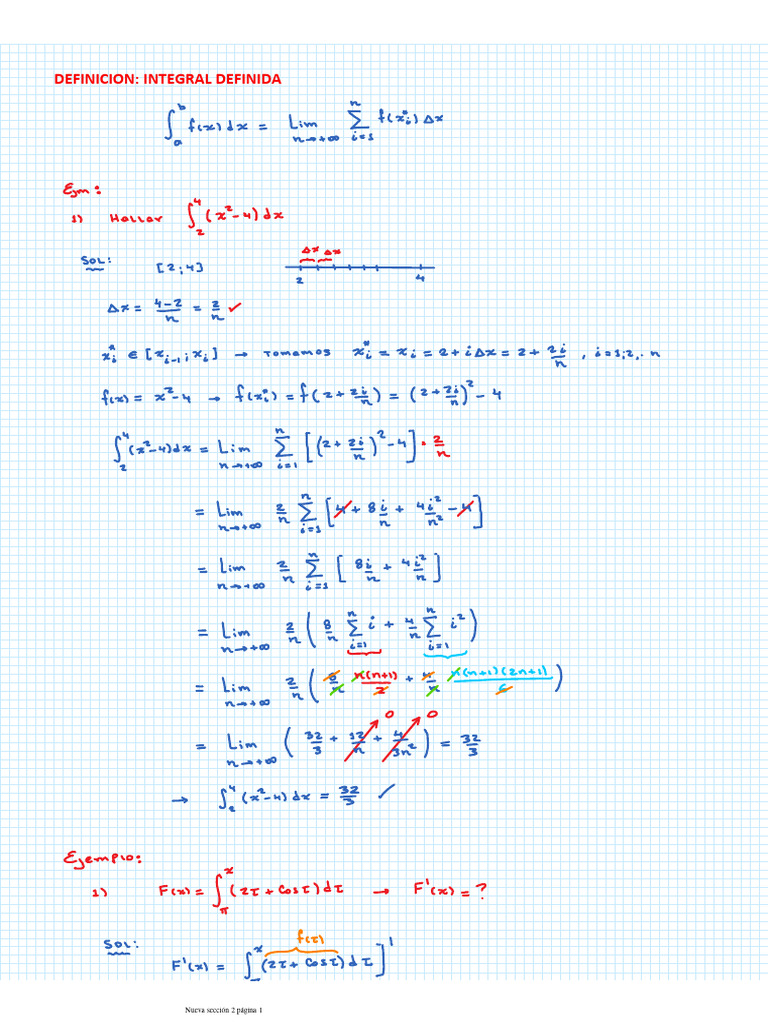 DEFINICION: INTEGRAL DEFINIDA
∫_a^b f(x) dx = Lim_{n→+∞} ∑_{i=1}^n f(x_i^*) Δx
Ejm:
1) Hallar ∫_2^4 (x²-4) dx
SOL: [2;4] Δx Δx 2 4
Δx = (4-2)/n = 2/n ✓
x_i^* ∈ [x_{i-1}; x_i] → Tomamos x_i^* = x_i = 2 + iΔx = 2 + 2i/n , i=1;2,.. n
f(x) = x²-4 → f(x_i^*) = f(2 + 2i/n) = (2 + 2i/n)² - 4
∫_2^4 (x²-4) dx = Lim_{n→+∞} ∑_{i=1}^n [(2 + 2i/n)² - 4] · 2/n
= Lim_{n→+∞} 2/n ∑_{i=1}^n [4 + 8i/n + 4i²/n² - 4]
= Lim_{n→+∞} 2/n ∑_{i=1}^n [8i/n + 4i²/n]
= Lim_{n→+∞} 2/n (8/n ∑_{i=1}^n i + 4/n ∑_{i=1}^n i²)
= Lim_{n→+∞} 2/n (8/n n(n+1)/2 + 4/n n(n+1)(2n+1)/6)
= Lim_{n→+∞} (32/3 + 12/n + 4/3n²) = 32/3 0 0
→ ∫_2^4 (x²-4) dx = 32/3 ✓
Ejemplo:
1) F(x) = ∫_π^x (2τ + Cosτ) dτ → F'(x) = ?
SOL: f(τ)
F'(x) = ∫^x (2τ + Cosτ) dτ]'
Nueva sección 2 página 1